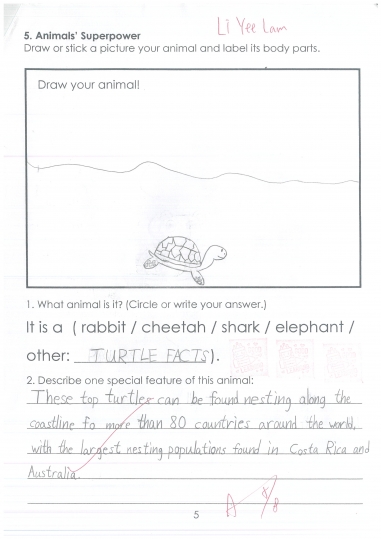 Li Yee Lam
5. Animals' Superpower
Draw or stick a picture your animal and label its body parts.
Draw your animal!
1. What animal is it? (Circle or write your answer.)
It is a ( rabbit / cheetah / shark / elephant /
other: TURTLE FACTS ).
2. Describe one special feature of this animal:
These top turtles can be found nesting along the
coastline fo more than 80 countries around the world,
with the largest nesting populations found in Costa Rica and
Australia.
A
5